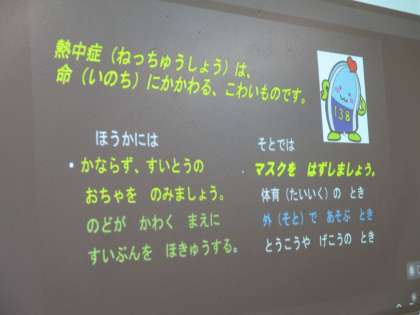 熱中症（ねっちゅうしょう）は、
命（いのち）にかかわる、こわいものです。
138
ほうかには
・かならず、すいとうの
おちゃを のみましょう。
のどが かわく まえに
すいぶんを ほきゅうする。
そとでは
・マスクを はずしましょう。
体育（たいいく）の とき
外（そと）で あそぶ とき
とうこうや げこうの とき